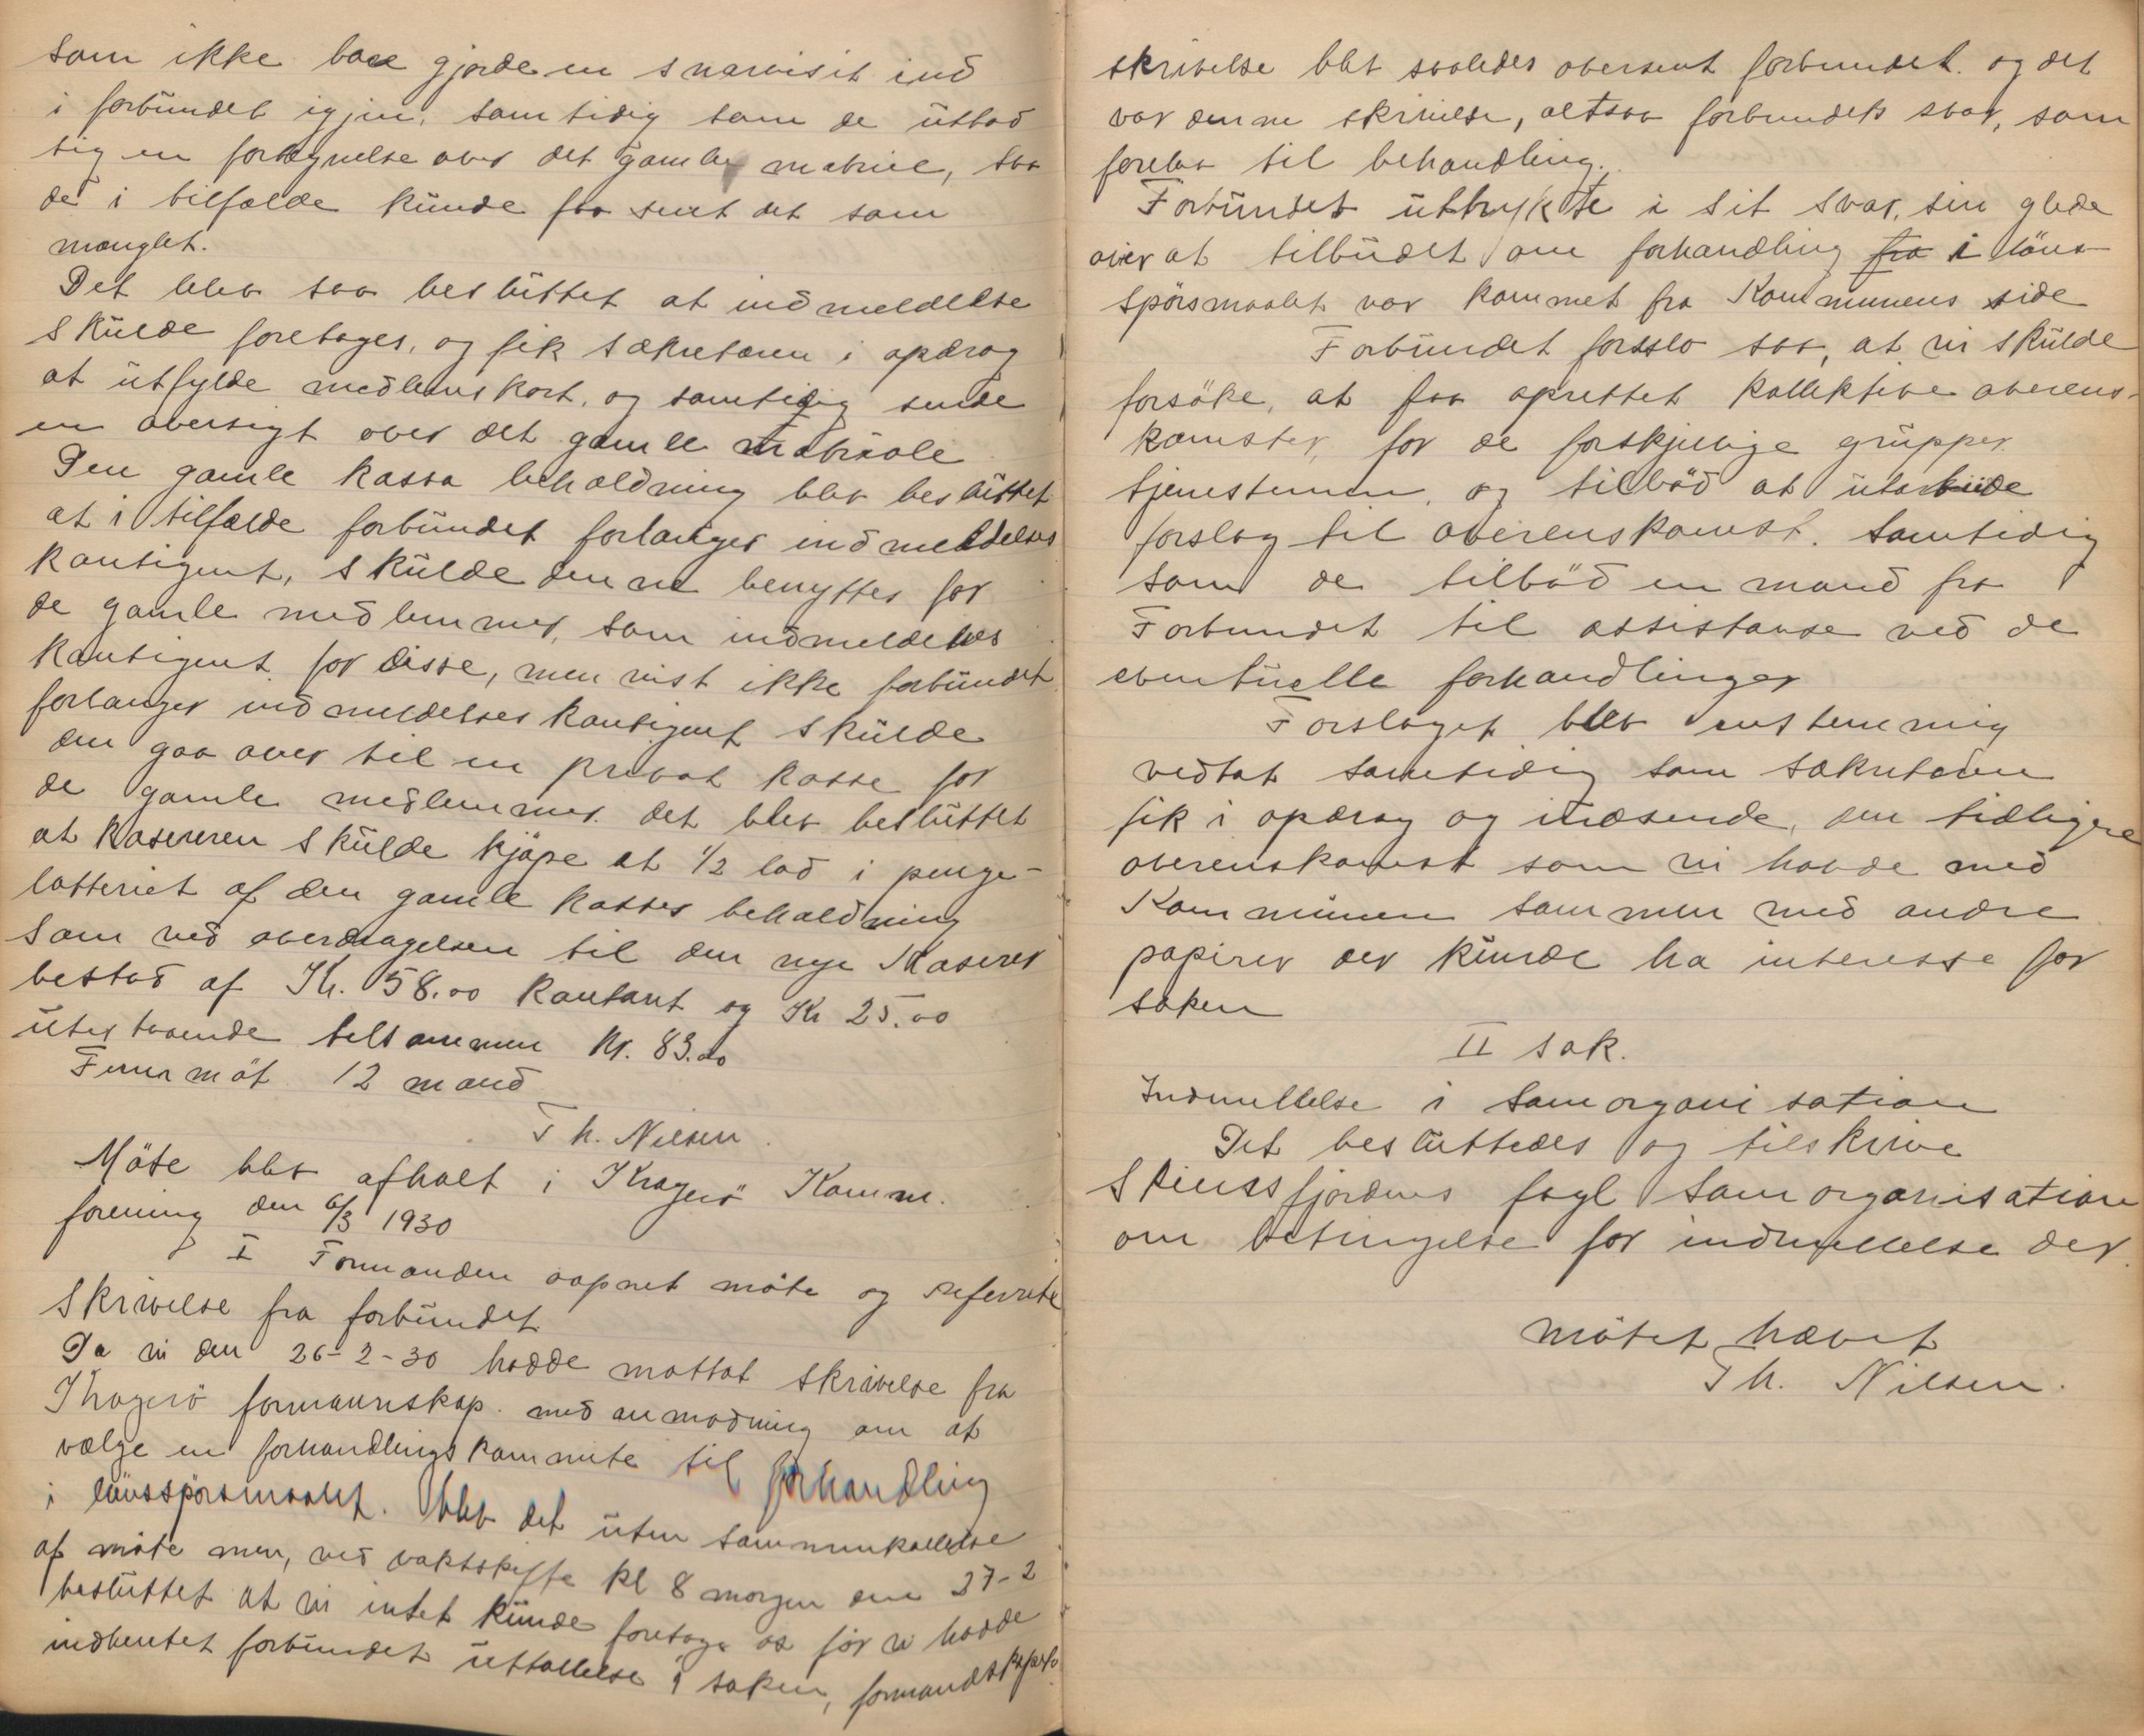 som ikke bare gjorde en snarvisit ind
i forbundet igjen, samtidig som de utbad
sig en fortegnelse over det gamle matriel, saa
de i tilfælde kunde faa sent det som
manglet.
Det blev saa besluttet at indmeldelse
skulde foretages, og fik sækretæren i opdrag
at utfylde medlemskort, og samtidig sende
en oversigt over det gamle matriale
Den gamle kassa beholdning blev besluttet
at i tilfælde forbundet forlanger indmeldelses
kontigent, skulde denne benyttes for
de gamle medlemmer, som indmeldelses
kontigent for disse, men vist ikke forbundet
forlanger indmeldelses kontigent skulde
den gaa over til en privat kasse for
de gamle medlemmer. det blev besluttet
at kasereren skulde kjöpe et 1/2 lod i penge-
lotteriet af den gamle kasses beholdning
som ved overdragelsen til den nye Kaserer
bestod af Kr. 58.00 kontant og Kr 25.00
utestaaende tilsammen Kr. 83.00
Fremmöt 12 mand
Th. Nilsen.
Möte blev afholt i Kragerö Komm.
forening den 6/3 1930
I Formanden aapnet möte og refererte
skrivelse fra forbundet
Da vi den 26-2-30 hadde mottat skrivelse fra
Kragerö formannskap. med anmodning om at
vælge en forhandlingskommite til forhandling
i lönsspörsmaalet. blev det uten sammenkallelse
af möte men, ved vaktskifte kl 8 morgen den 27-2
besluttet at vi intet kunde foretage os för vi hadde
indhentet forbundet uttallelse i saken, formandskapets
skrivelse blev saaledes oversent forbundet. og det
var denne skrivelse, altsaa forbundets svar, som
forelaa til behandling.
Forbundet uttrykte i sit svar, sin glede
over at tilbudet om forhandling fra i löns-
spörsmaalet var kommet fra Kommunens side
Forbundet forsslo saa, at vi skulde
forsöke, at faa oprettet kollektive overens-
komster, for de forskjellige grupper
tjenestemen, og tilböd at utarbeide
forslag til overenskomst. Samtidig
som de tilböd en mand fra
Forbundet til assistanse ved de
eventuelle forhandlinger
Forslaget blev enstemmig
vedtat samtidig som sækretæren
fik i opdrag og indsende, den tidligere
overenskomst som vi havde med
Kommunen sammen med andre
papirer der kunde ha interesse for
saken
II sak.
Indmellelse i Samorganisation
Det besluttedes og tilskrive
Skiensfjordens fagl Samorganisation
om betingelse for indmellelse der.
mötet hævet
Th. Nilsen.